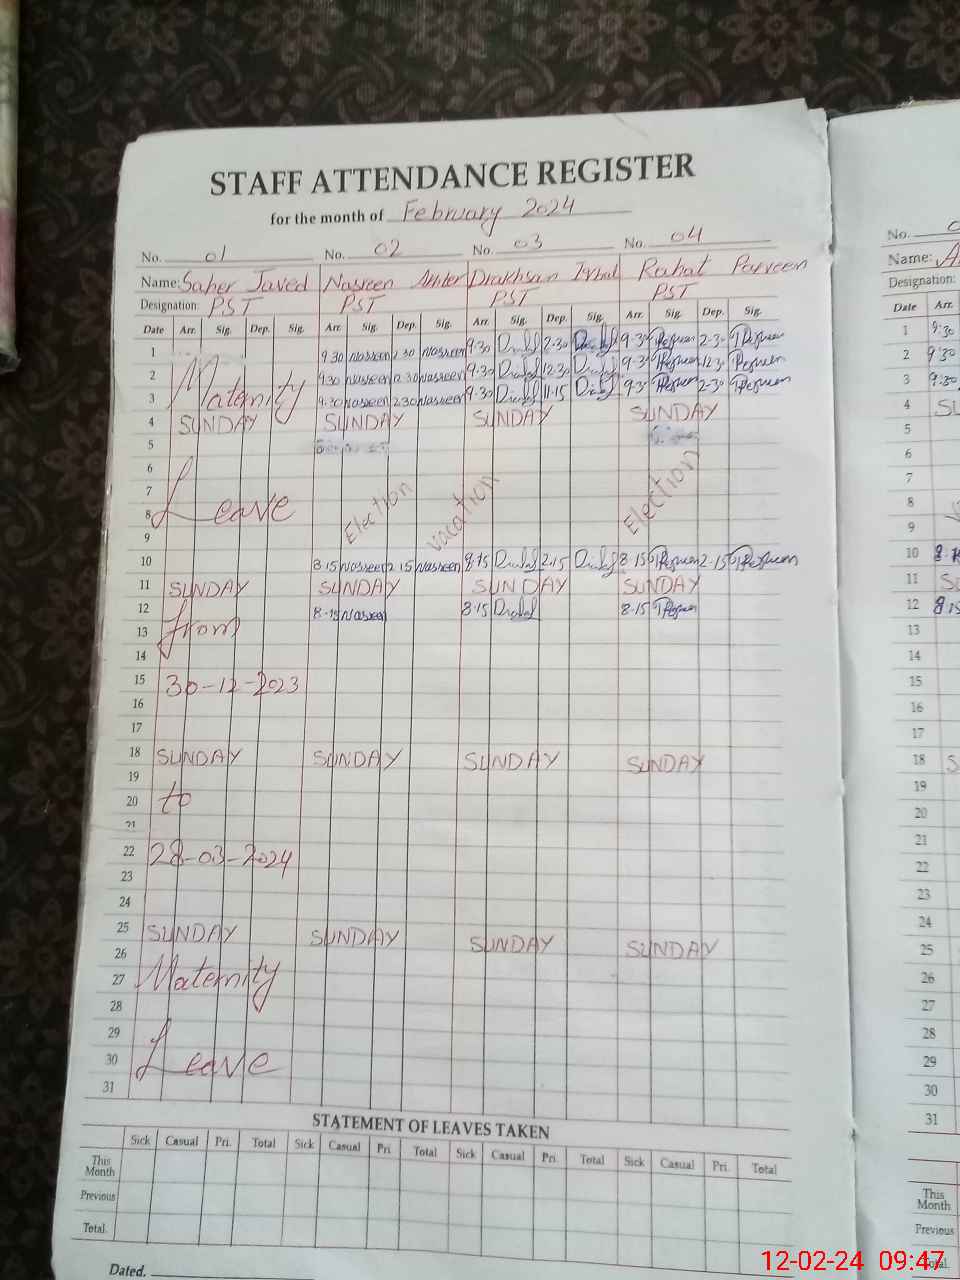 STAFF ATTENDANCE REGISTER
for the month of February 2024
No. 01 No. 02 No. 03 No. 04
Name: Saher Javed Nasreen Akhter Drakhsan Iqbal Rahat Parveen
Designation: PST PST PST PST
Date Arr. Sig. Dep. Sig. Arr. Sig. Dep. Sig. Arr. Sig. Dep. Sig. Arr. Sig. Dep. Sig.
1 9:30 Nasreen 2:30 Nasreen 9:30 2:30 9:30 2:30
2 9:30 Nasreen 12:30 Nasreen 9:30 12:30 9:30 12:30
3 Maternity 9:30 Nasreen 2:30 Nasreen 9:30 11:15 9:30 2:30
4 SUNDAY SUNDAY SUNDAY SUNDAY
5
6
7
8 Leave Election vacation Election
9
10 8:15 Nasreen 2:15 Nasreen 8:15 2:15 8:15 2:15
11 SUNDAY SUNDAY SUNDAY SUNDAY
12 8:15 Nasreen 8:15 8:15
13 from
14
15 30-12-2023
16
17
18 SUNDAY SUNDAY SUNDAY SUNDAY
19
20 to
21
22 28-03-2024
23
24
25 SUNDAY SUNDAY SUNDAY SUNDAY
26
27 Maternity
28
29
30 Leave
31
STATEMENT OF LEAVES TAKEN
Sick Casual Pri. Total Sick Casual Pri Total Sick Casual Pri. Total Sick Casual Pri. Total
This Month
Previous
Total.
Dated.
No.
Name:
Designation:
Date Arr.
1 9:30
2 9:30
3 9:30
4
5
6
7
8
9
10
11
12 8:15
13
14
15
16
17
18
19
20
21
22
23
24
25
26
27
28
29
30
31
This Month
Previous
Total.
12-02-24 09:47